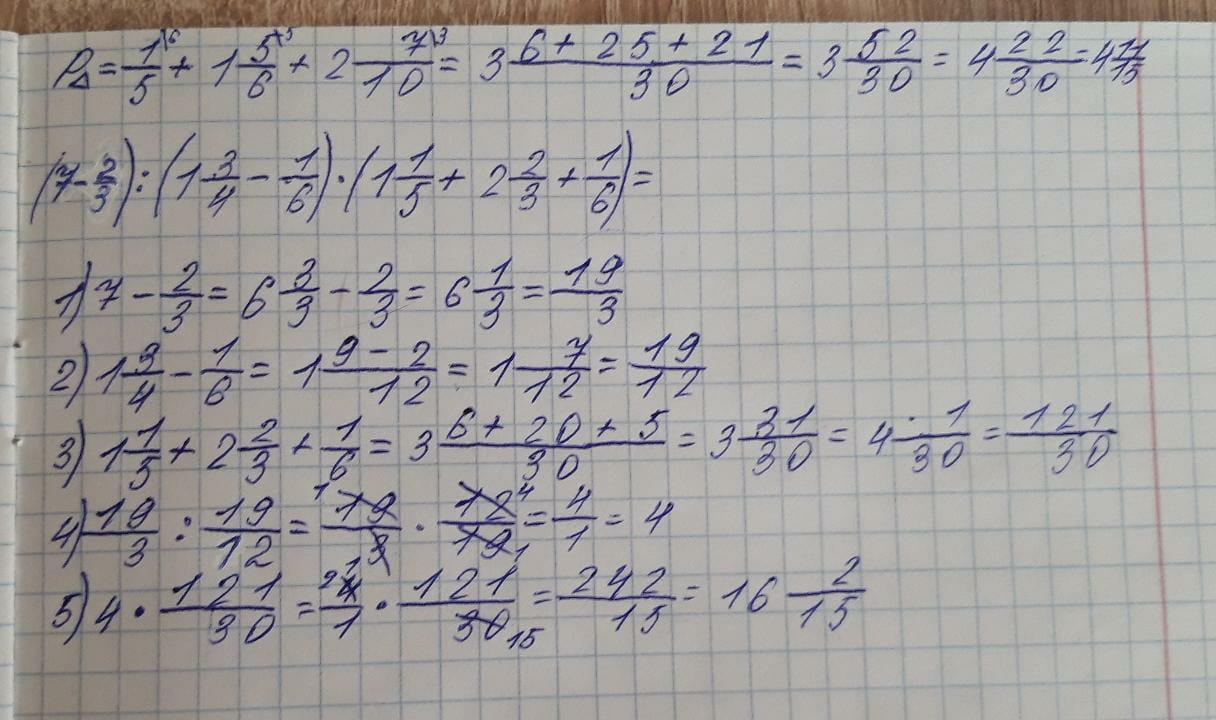 P△ = 1/5 \6 + 1 5/6 \5 + 2 7/10 \3 = 3 (6 + 25 + 21)/30 = 3 52/30 = 4 22/30 = 4 11/15
(7 - 2/3) : (1 3/4 - 1/6) · (1 1/5 + 2 2/3 + 1/6) =
1) 7 - 2/3 = 6 3/3 - 2/3 = 6 1/3 = 19/3
2) 1 3/4 - 1/6 = 1 (9 - 2)/12 = 1 7/12 = 19/12
3) 1 1/5 + 2 2/3 + 1/6 = 3 (6 + 20 + 5)/30 = 3 31/30 = 4 1/30 = 121/30
4) 19/3 : 19/12 = 19/3 · 12/19 = 4/1 = 4
5) 4 · 121/30 = 4/1 · 121/30 = 242/15 = 16 2/15